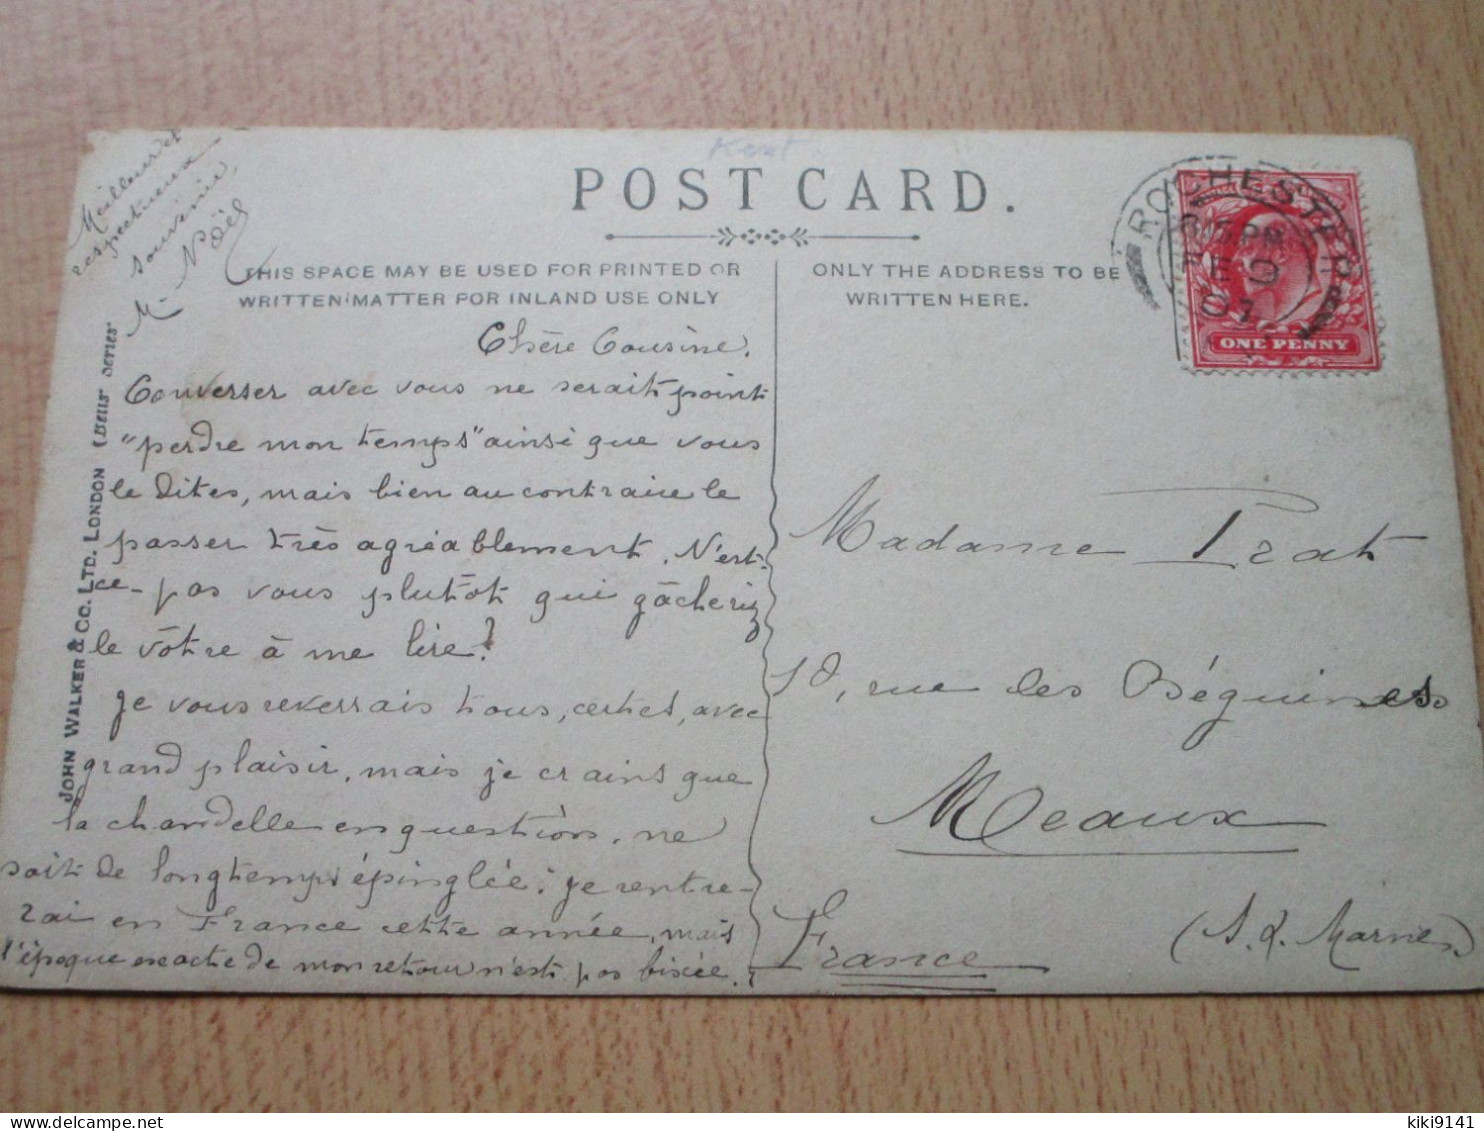 Kent
POST CARD.
THIS SPACE MAY BE USED FOR PRINTED OR
WRITTEN MATTER FOR INLAND USE ONLY
ONLY THE ADDRESS TO BE
WRITTEN HERE.
ROCHESTER
PM
FE 9
07
ONE PENNY
Meilleur et
respectueux
souvenir,
M. Noël
JOHN WALKER & CO. LTD. LONDON (Bells series
Chère Cousine.
Converser avec vous ne serait point
"perdre mon temps" ainsi que vous
le dites, mais bien au contraire le
passer très agréablement. N'est-
ce-pas vous plutôt qui gâcheriez
le vôtre à me lire?
Je vous reverrais tous, certes, avec
grand plaisir, mais je crains que
la chandelle en question, ne
soit de longtemps épinglée: je rentre-
rai en France cette année, mais
l'époque exacte de mon retour n'est pas bixée.
Madame Prat
18, rue des Béguines
Meaux
France
(S. & Marne)
kiki9141